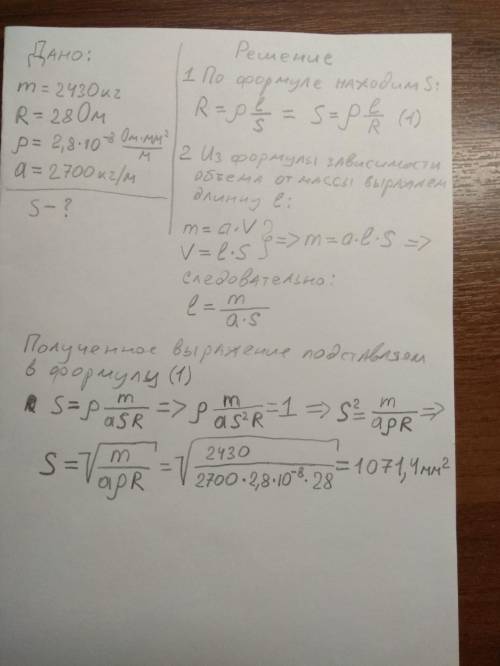 Дано:
m = 2430кг
R = 28Ом
ρ = 2,8·10⁻⁸ Ом·мм²/м
a = 2700кг/м
S - ?
Решение
1 По формуле находим S:
R = ρ l/S = S = ρ l/R (1)
2 Из формулы зависимости
объема от массы выражаем
длинну l:
m = a·V
V = l·S } => m = a·l·S =>
следовательно:
l = m/a·s
Полученное выражение подставляем
в формулу (1)
S = ρ m/aSR => ρ m/aS²R = 1 => S² = m/aρR =>
S = √m/aρR = √2430/2700·2,8·10⁻⁸·28 = 1071,4мм²